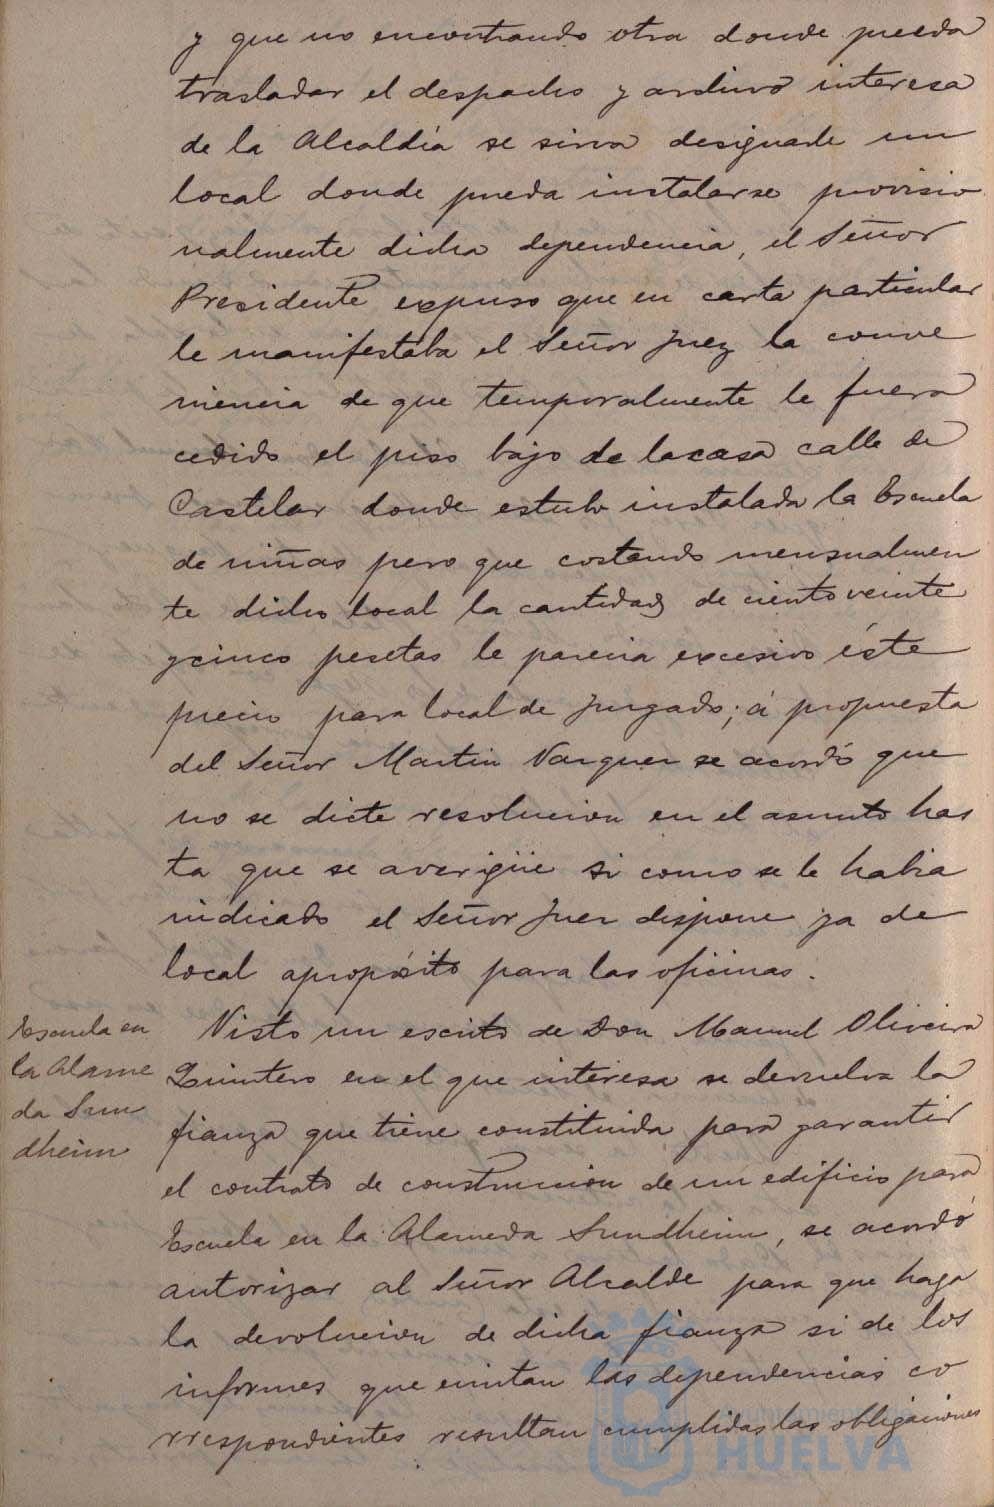 y que no encontrando otra donde pueda
trasladar el despacho y archivo interesa
de la Alcaldía se sirva designarle un
local donde pueda instalarse provisio
nalmente dicha dependencia, el Señor
Presidente expuso que en carta particular
le manifestaba el Señor Juez la conve
niencia de que temporalmente le fuera
cedido el piso bajo de la casa calle de
Castelar donde estubo instalada la Escuela
de niñas pero que costando mensualmen
te dicho local la cantidad de ciento veinte
y cinco pesetas le parecia excesivo éste
precio para local de Juzgado; á propuesta
del Señor Martin Vazquez se acordó que
no se dicte resolucion en el asunto has
ta que se averigüe si como se le habia
indicado el Señor Juez dispone ya de
local apropósito para las oficinas.
Escuela en
la Alame
da Sun
dheim
Visto un escrito de Don Manuel Oliveira
Quintero en el que interesa se devuelva la
fianza que tiene constituida para garantir
el contrato de construccion de un edificio para
Escuela en la Alameda Sundheim, se acordó
autorizar al Señor Alcalde para que haga
la devolucion de dicha fianza si de los
informes que emitan las dependencias co
rrespondientes resultan cumplidas las obligaciones
Ayuntamiento de
HUELVA